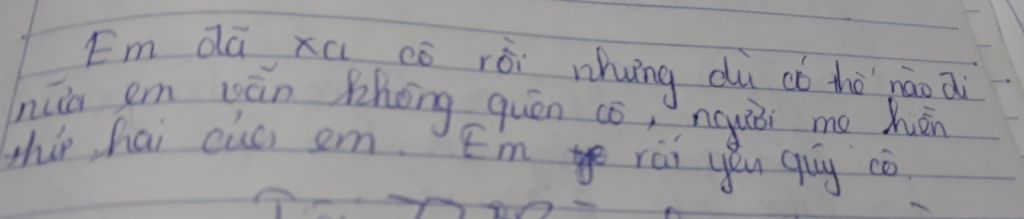 Em đã xa cô rồi nhưng dù có thế nào đi
nữa em vẫn không quên cô, người mẹ hiền
thứ hai của em. Em rất yêu quý cô.